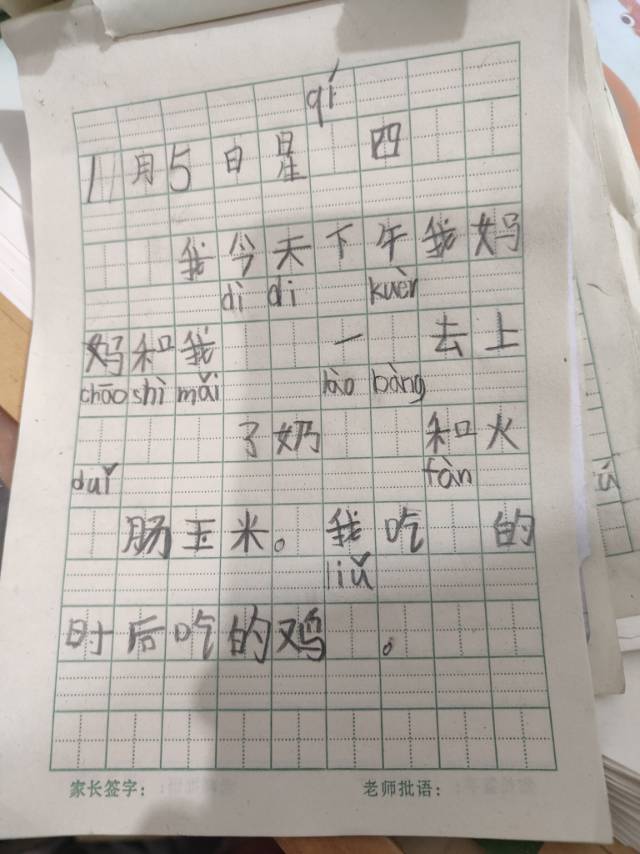 qí
11月5日星 四
我今天下午我妈
dì di kuèr
妈和我 一 去上
chāo shì mǎi lào bàng
了奶 和火
duǐ fàn
肠玉米。我吃 的
liǔ
时后吃的鸡 。
家长签字： 老师批语：